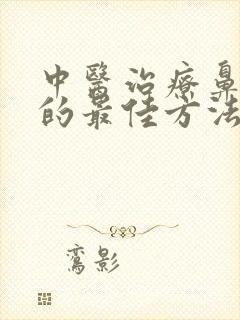 中醫治療鼻
的最佳方法
鸞影